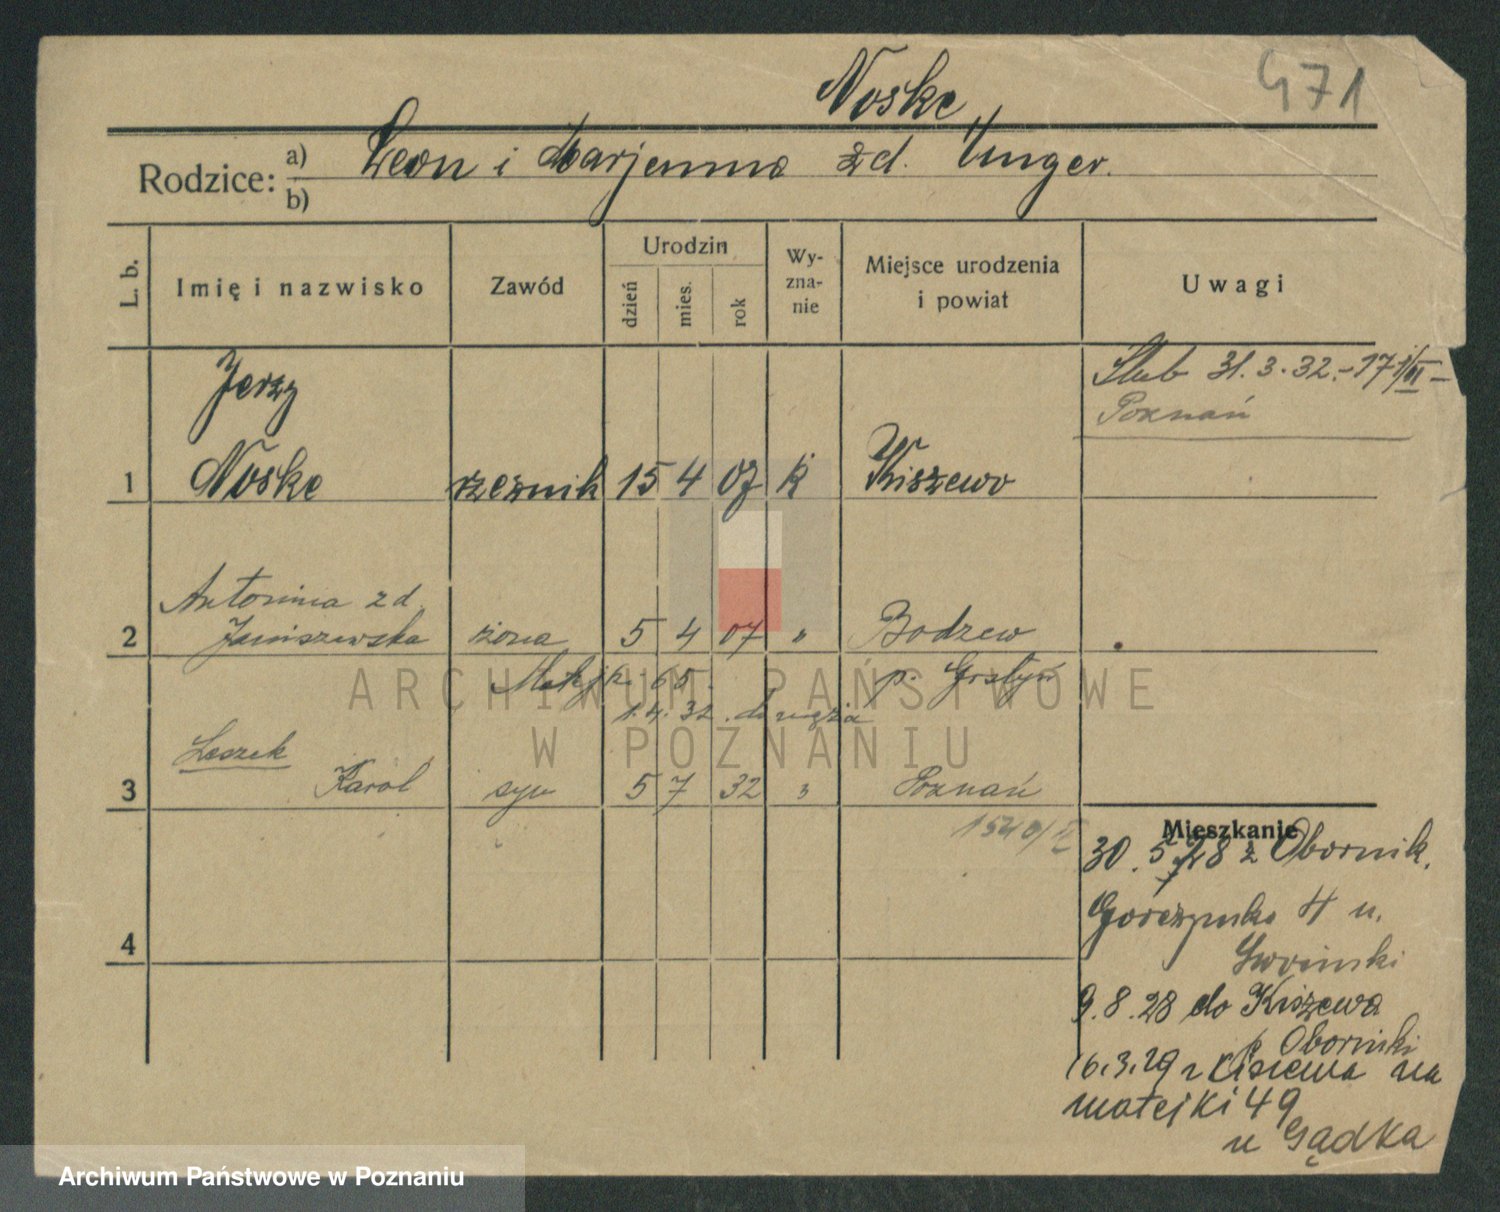 Noske
471
Rodzice: a) Leon i Marjanna zd. Unger.
b)
L. b.
Imię i nazwisko
Zawód
Urodzin
dzień
mies.
rok
Wy-
zna-
nie
Miejsce urodzenia
i powiat
Uwagi
Ślub 31.3.32.
Poznań
Jerzy
1 Noske rzeźnik 15 4 07 k Kiszewo
Antonina zd.
2 Janiszewska żona 5 4 07 " Bodzew
65. p. Gostyń
1.4.32. do męża
Leszek
3 Karol syn 5 7 32 " Poznań
Mieszkanie
30. 5. 28 z Obornik.
4
9.8.28 do Kiszewa
p. Oborniki
16.3.29 z Kiszewa na
matejki 49
u Gądka
ARCHIWUM PAŃSTWOWE
W POZNANIU
Archiwum Państwowe w Poznaniu